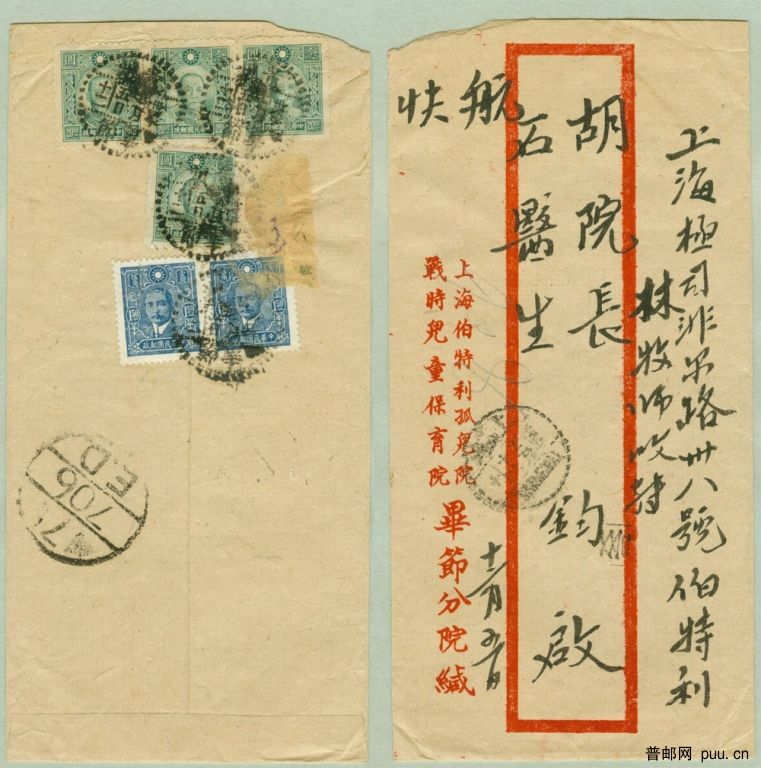 上海極司非尔路卅八號伯特利
林牧師收轉
胡院長
石醫生
鈞啟
航快
上海伯特利孤兒院
戰時兒童保育院
畢節分院緘
十二月五日
中華民國郵政
706
E D
普邮网 puu.cn